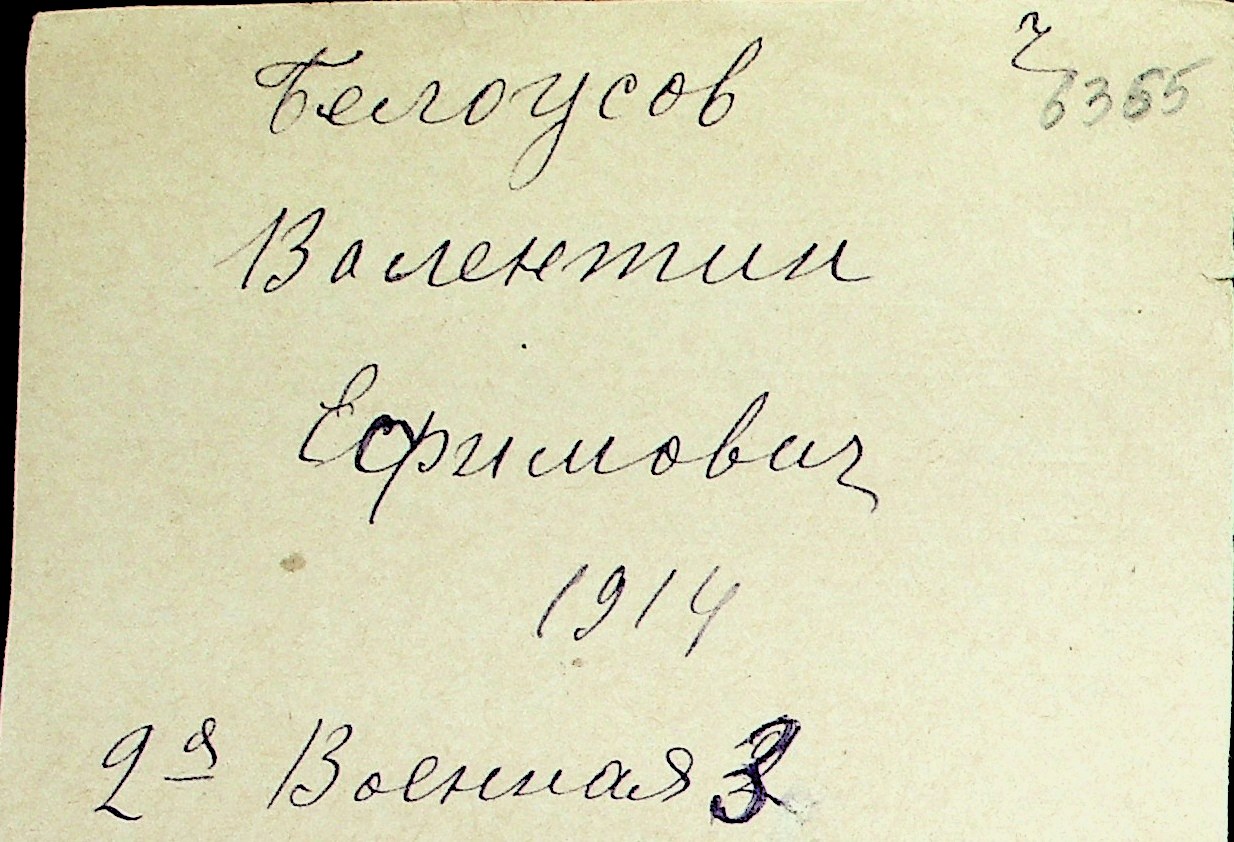 ч
6355
Белоусов
Валентин
Ефимович
1914
2я Военная 3